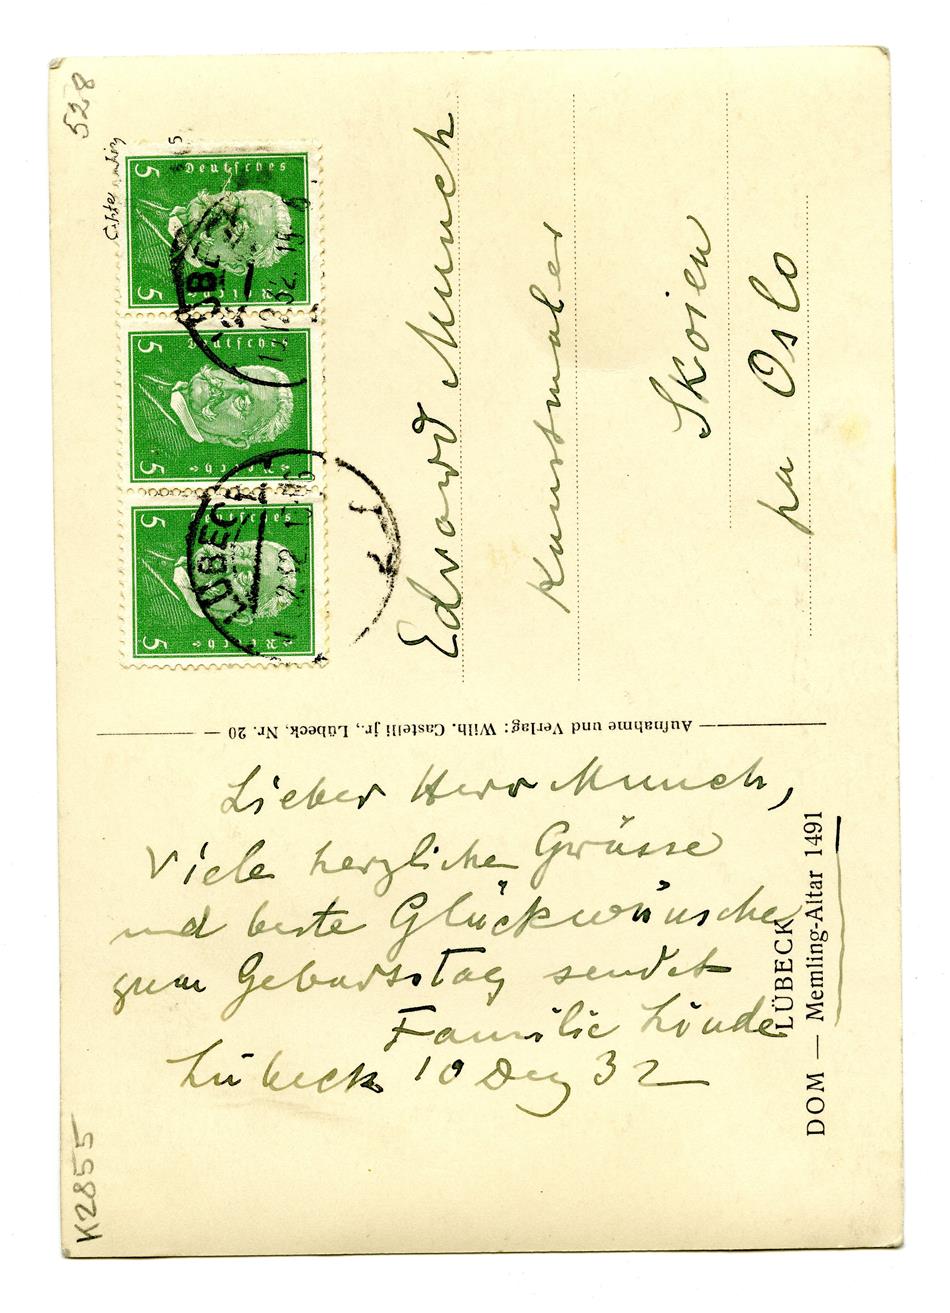 Lieber Herr Munch,
Viele herzliche Grüsse
und beste Glückwünsche
zum Geburtstag sendet
Familie Linde
Lübeck 10 Dez 32
LÜBECK
DOM — Memling-Altar 1491
Aufnahme und Verlag: Wilh. Castelli jr., Lübeck, Nr. 20
Edvard Munch
Kunstmaler
Skoien
pa Oslo
5 Deutsches Reich 5
5 Deutsches Reich 5
5 Deutsches Reich 5
LÜBECK
LÜBECK
528
K2855